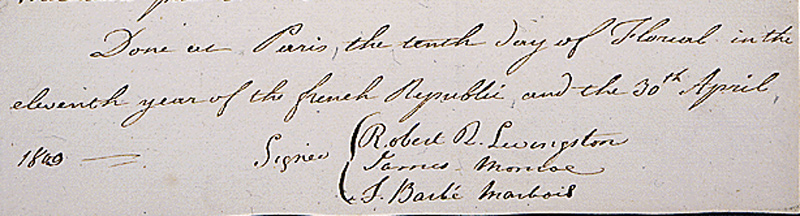 Done at Paris, the tenth day of Floreal in the
eleventh year of the french Republic, and the 30th April,
1803 Signed Robert R. Livingston
James Monroe
F. Barbé Marbois